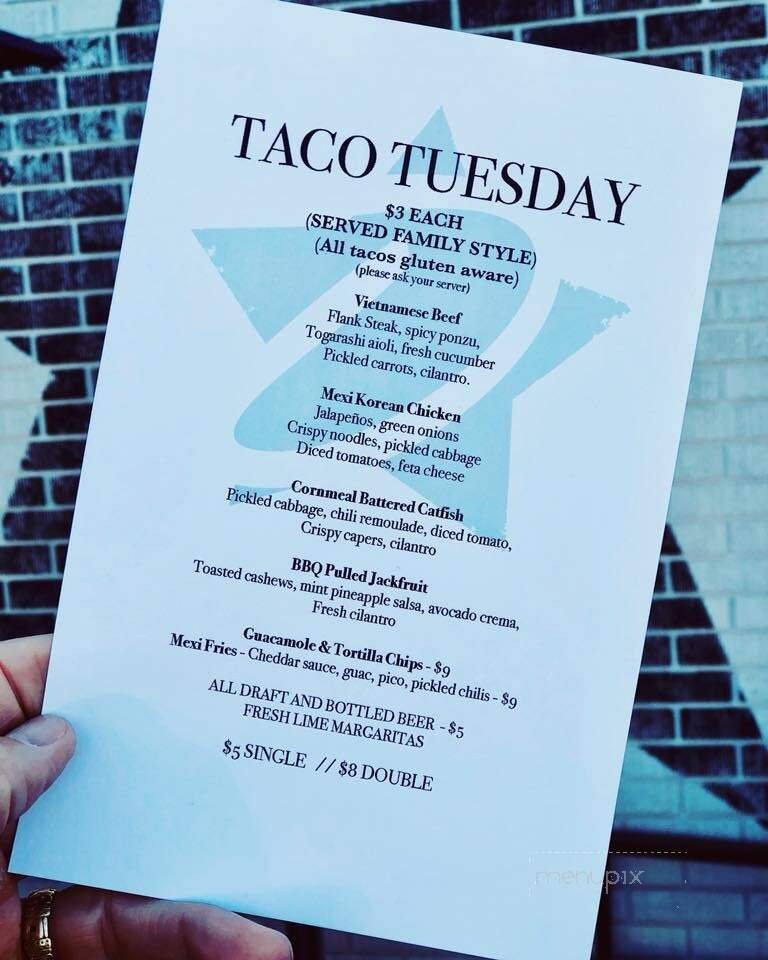 TACO TUESDAY
$3 EACH
(SERVED FAMILY STYLE)
(All tacos gluten aware)
(please ask your server)
Vietnamese Beef
Flank Steak, spicy ponzu,
Togarashi aioli, fresh cucumber
Pickled carrots, cilantro.
Mexi Korean Chicken
Jalapeños, green onions
Crispy noodles, pickled cabbage
Diced tomatoes, feta cheese
Cornmeal Battered Catfish
Pickled cabbage, chili remoulade, diced tomato,
Crispy capers, cilantro
BBQ Pulled Jackfruit
Toasted cashews, mint pineapple salsa, avocado crema,
Fresh cilantro
Guacamole & Tortilla Chips - $9
Mexi Fries - Cheddar sauce, guac, pico, pickled chilis - $9
ALL DRAFT AND BOTTLED BEER - $5
FRESH LIME MARGARITAS
$5 SINGLE // $8 DOUBLE
menupix